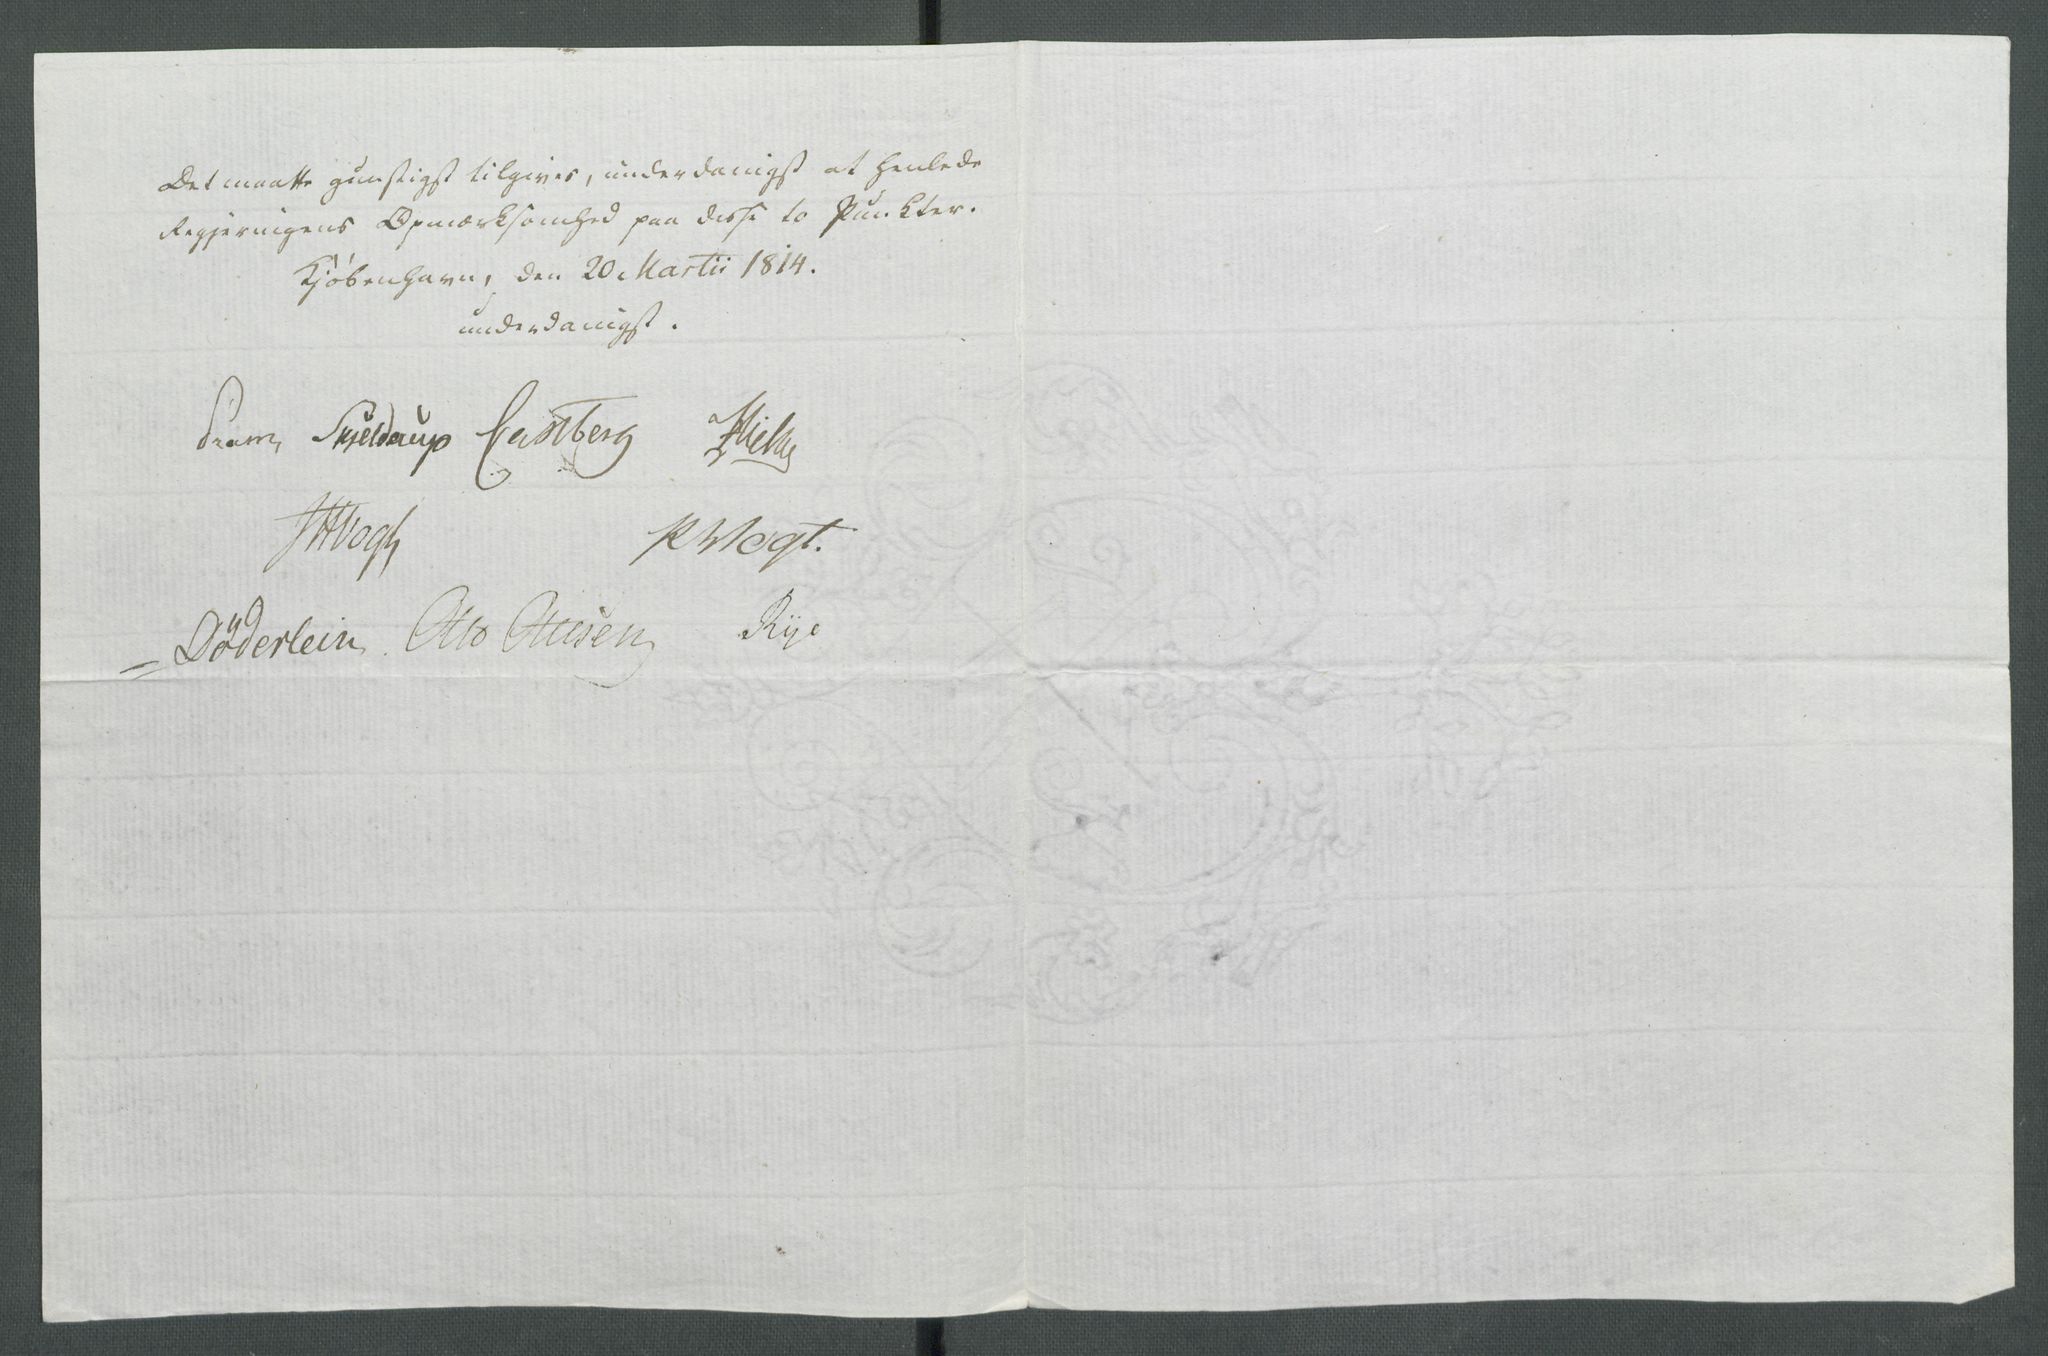 Det maatte gunstigst tilgives, underdanigst at henlede
Regjeringens Opmærksomhed paa disse to Punkter.
Kjöbenhavn, den 20 Martii 1814.
underdanigst.
Pram Skjelderup Castberg
JHVogt KVogt.
Döderlein. Otto Ottesen Rye